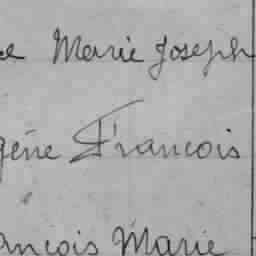 Marie Joseph
gène François
ançois Marie